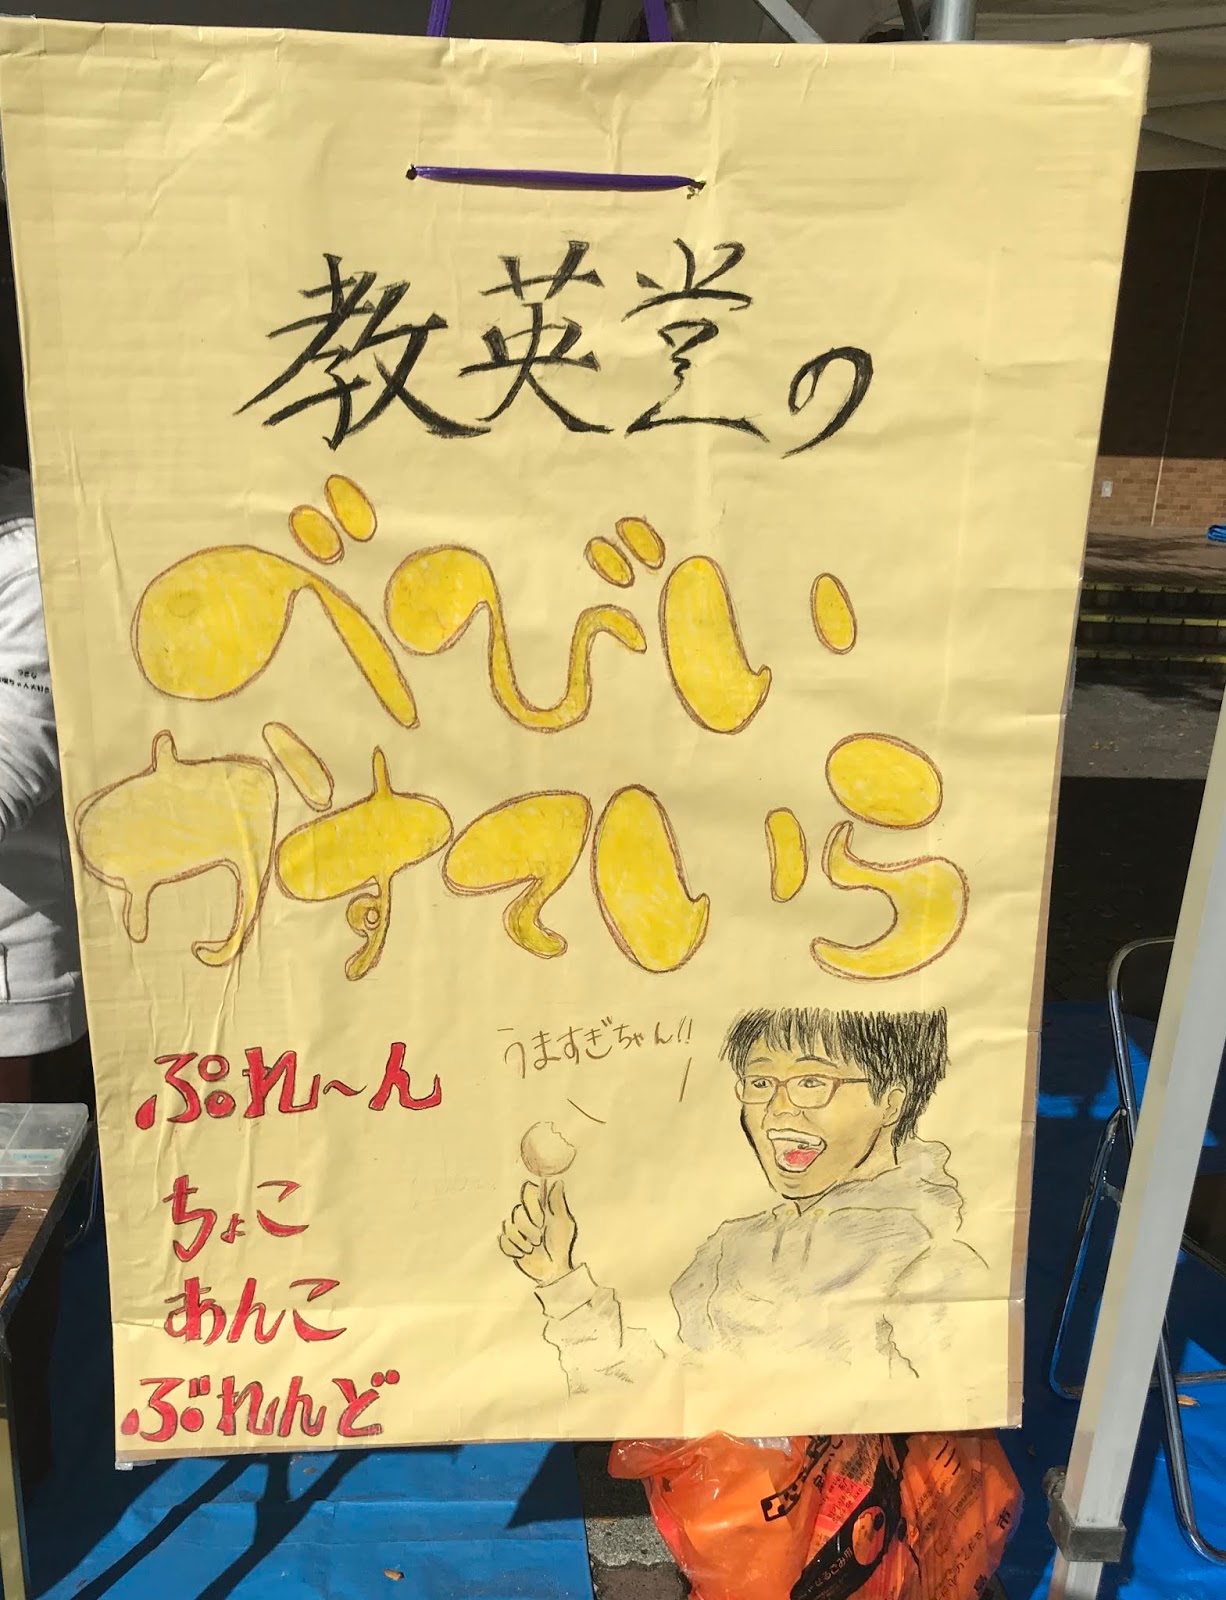 教英堂の
べびい
かすていら
うますぎちゃん!!
ぷれ〜ん
ちょこ
あんこ
ぶれんど